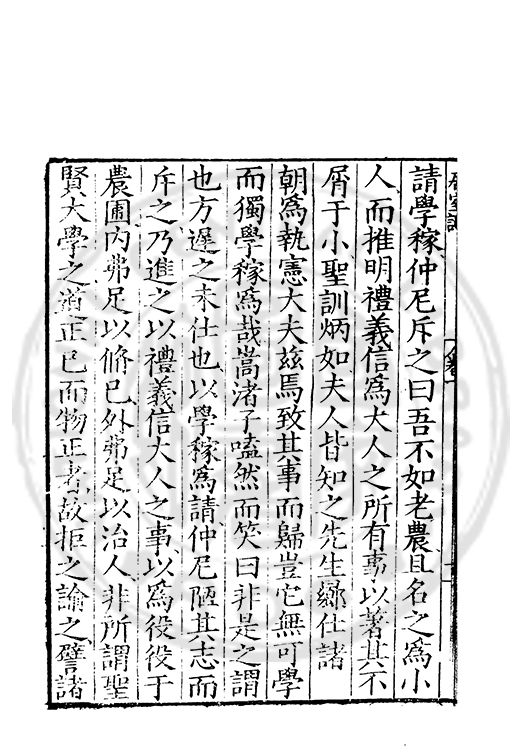 請學稼仲尼斥之曰吾不如老農且名之爲小
人而推明禮義信爲大人之所有事以著其不
屑于小聖訓炳如夫人皆知之先生鄉仕諸
朝爲執憲大夫兹焉致其事而歸豈它無可學
而獨學稼爲哉嵩渚子嗑然而笑曰非是之謂
也方遲之未仕也以學稼爲請仲尼陋其志而
斥之乃進之以禮義信大人之事以爲役役于
農圃内弗足以脩己外弗足以治人非所謂聖
賢大學之道正已而物正者故拒之諭之譬諸